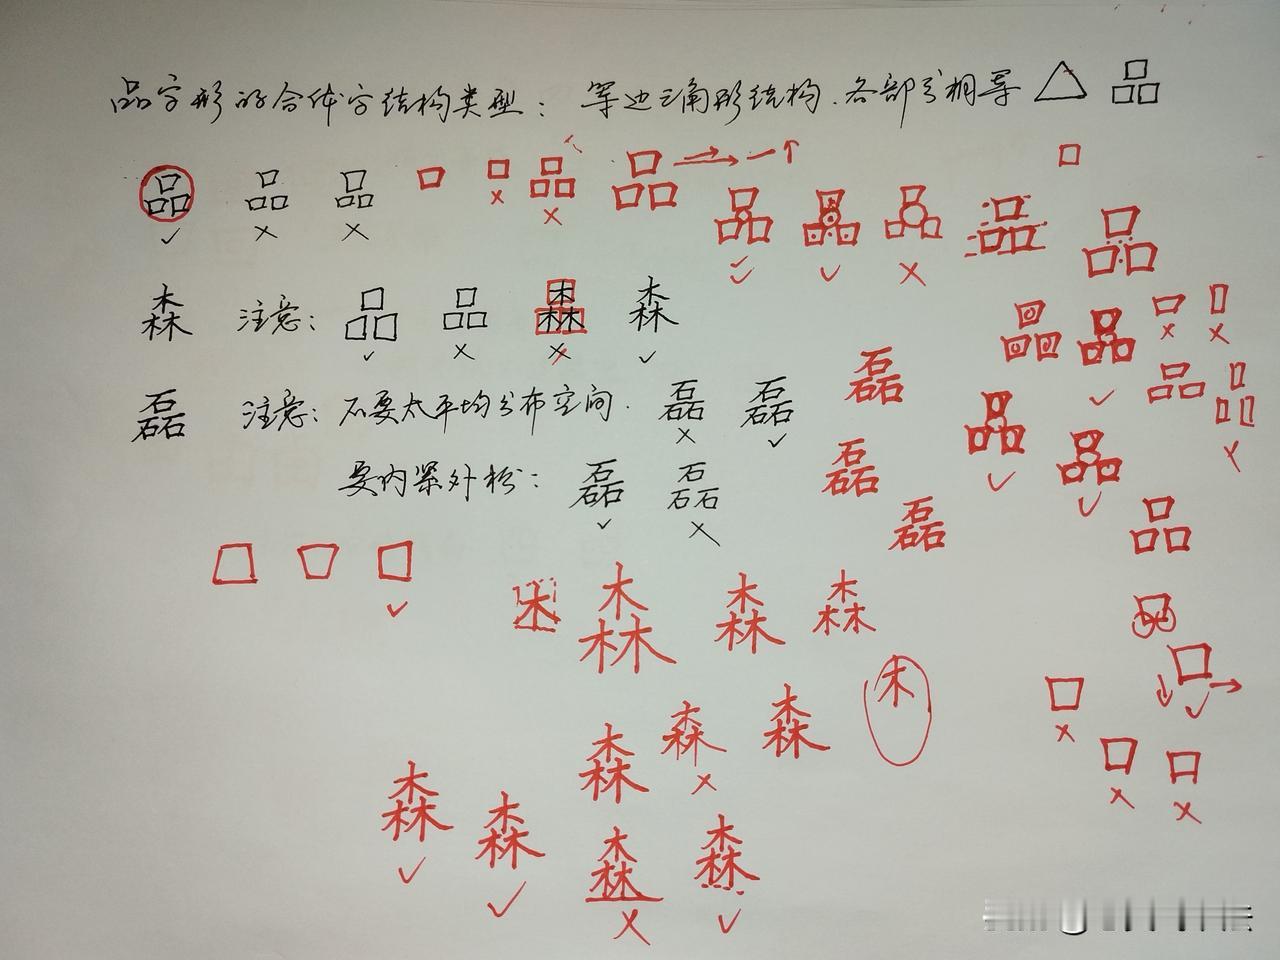 品字形的合体字结构类型：等边三角形结构.各部分相等 品
品 品 品 品 品 品 品 品 品 品 品
森 注意：品 品 森 森 品 品
磊 注意：不要太平均分布空间. 磊 磊 磊 品 品
要内紧外松：磊 磊 磊 磊 品 品 品
木 森 森 森
森 森 森 木
森 森 森 森